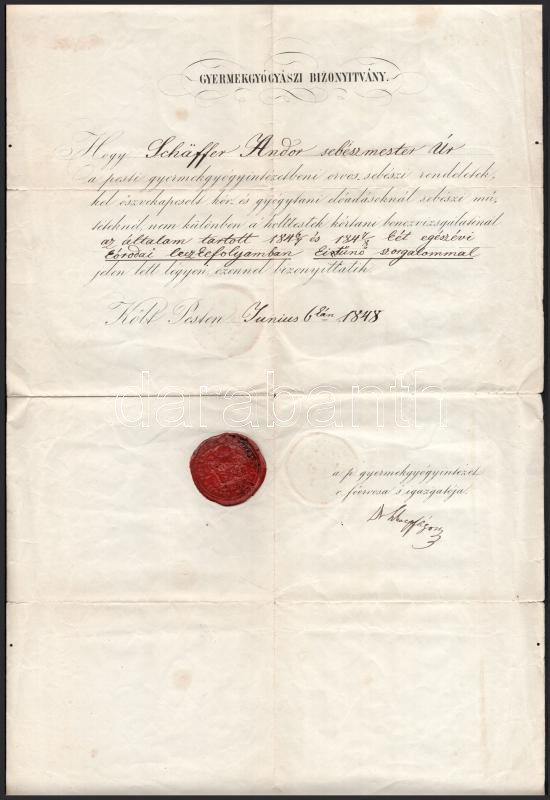 GYERMEKGYÓGYÁSZI BIZONYITVÁNY.
Hogy Schäffer Andor sebészmester Úr
a pesti gyermekgyógyintézetbeni orvos, sebészi rendeletek,
kel öszvekapcsolt kór, és gyógytani előadásoknál sebészi mű,
teteknél, nem különben a holttestek kórtani vizsgálatainál
az általam tartott 184 6/7 és 184 7/8 két egészévi
kórodai leczkefolyamban kitűnő szorgalommal
jelen lett légyen, ezennel bizonyittatik.
Költ Pesten Junius 6 kán 1848
darabanth
a p. gyermekgyógyintézet
r. főorvosa 's igazgatója.
Dr